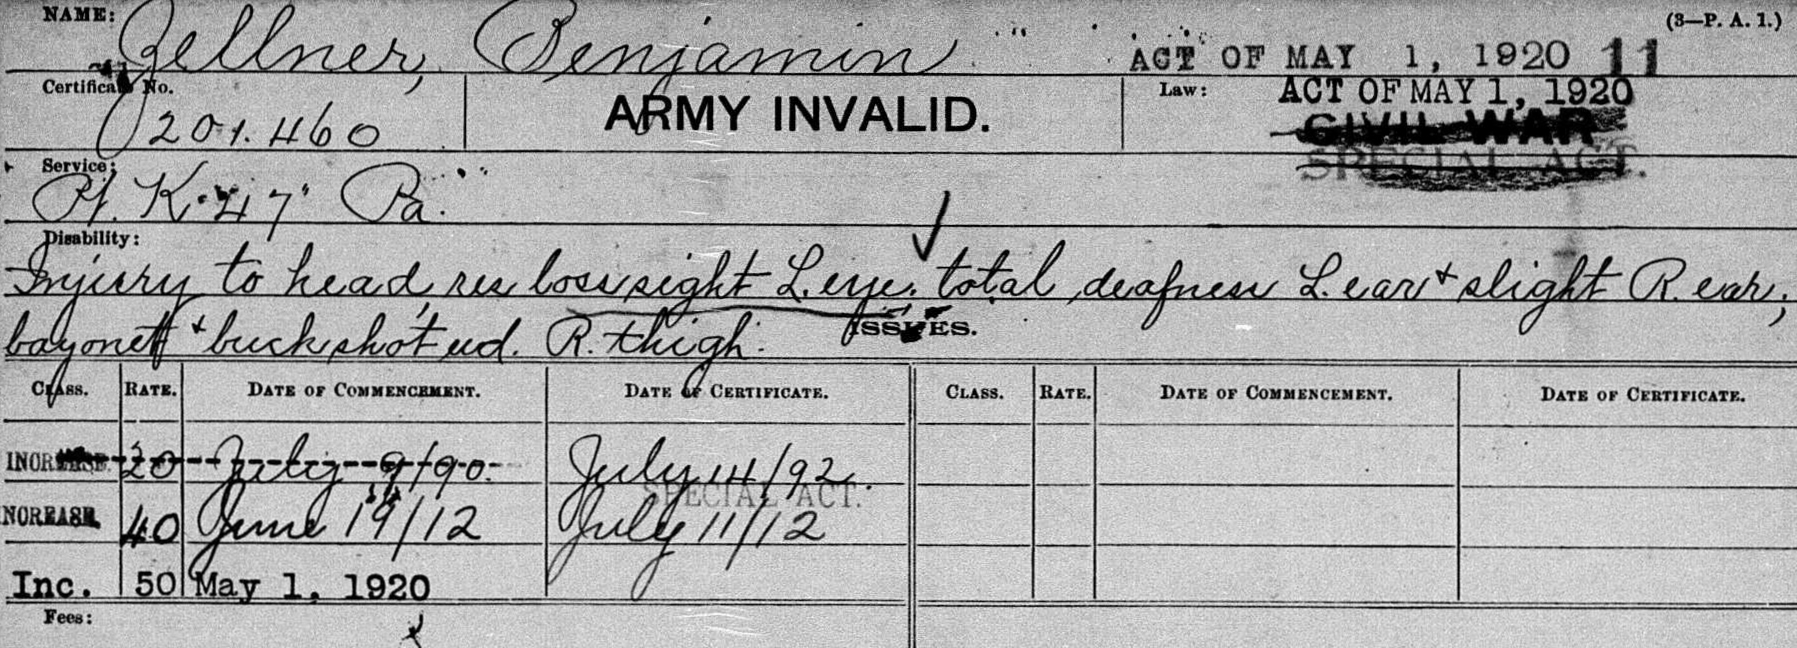 (3—P. A. 1.)
NAME: Zellner, Benjamin
ACT OF MAY 1, 1920 11
Certificate No. 201.460
ARMY INVALID.
Law: ACT OF MAY 1, 1920
CIVIL WAR
SPECIAL ACT.
Service: K. 47" Pa.
Disability:
Injury to head, res loss sight L. eye. total deafness L. ear & slight R. ear;
bayonet & buckshot wd. R. thigh.
ISSUES.
CLASS. RATE. DATE OF COMMENCEMENT. DATE OF CERTIFICATE. CLASS. RATE. DATE OF COMMENCEMENT. DATE OF CERTIFICATE.
INCREASE. 20 July 9/90. July 14/92.
SPECIAL ACT.
INCREASE. 40 June 19/12 July 11/12
Inc. 50 May 1, 1920
Fees: